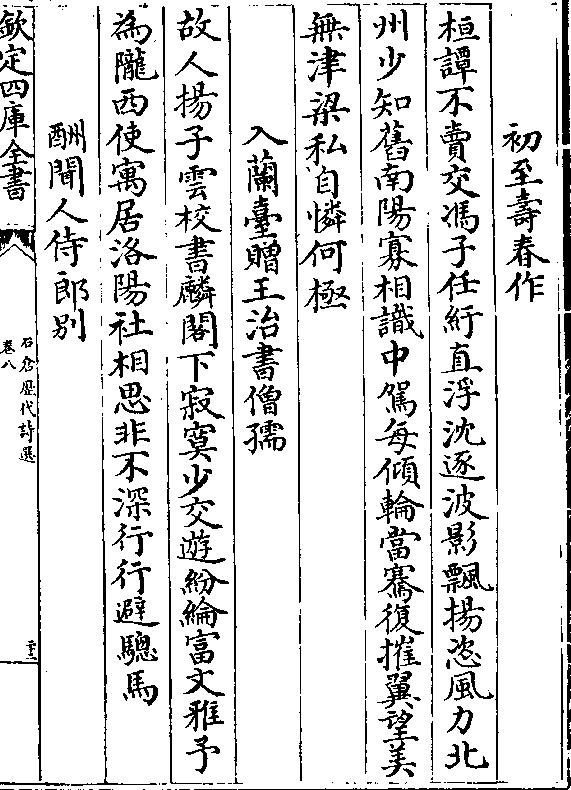 初至壽春作
桓譚不賣交馮子任紆直浮沈逐波影飄揚恣風力北
州少知舊南陽寡相識中駕每傾輪當騫復摧翼望美
無津梁私自憐何極
入蘭臺贈王治書僧孺
故人揚子雲校書麟閣下寂寞少交遊紛綸富文雅予
為隴西使寓居洛陽社相思非不深行行避驄馬
酬聞人侍郎别
欽定四庫全書
石倉歴代詩選
卷八